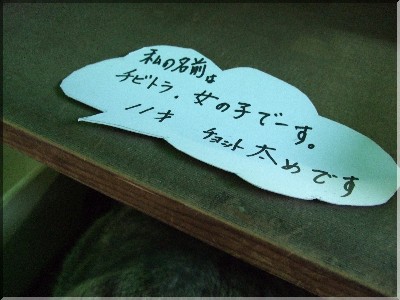 私の名前は
チビトラ、女の子でーす。
11才
チョット太めです